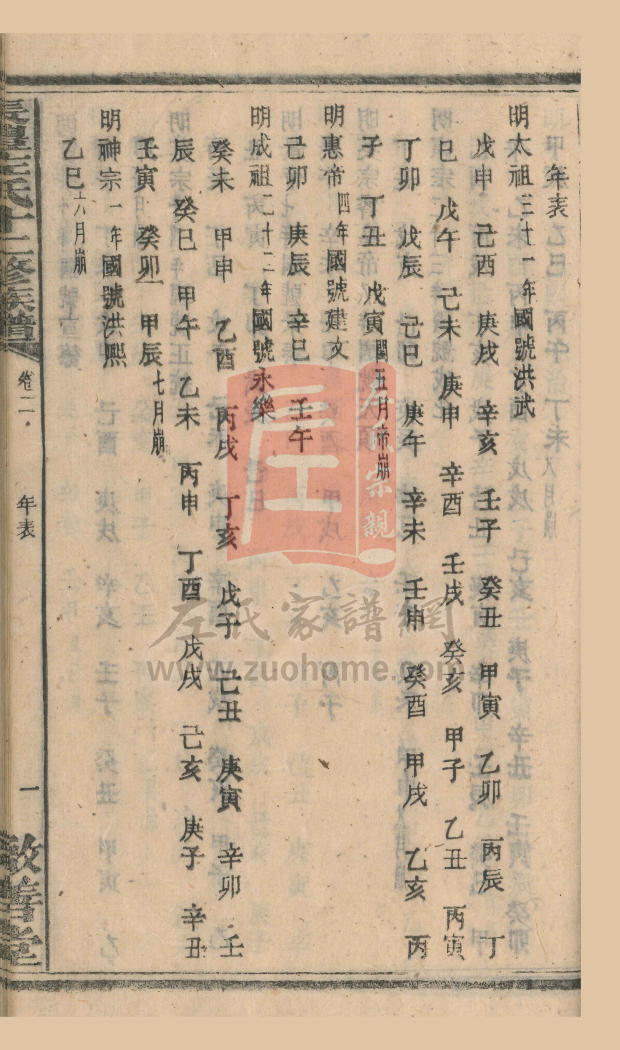 年表
明太祖三十一年國號洪武
戊申 己酉 庚戌 辛亥 壬子 癸丑 甲寅 乙卯 丙辰 丁
巳 戊午 己未 庚申 辛酉 壬戌 癸亥 甲子 乙丑 丙寅
丁卯 戊辰 己巳 庚午 辛未 壬申 癸酉 甲戌 乙亥 丙
子 丁丑 戊寅閏五月帝崩
明惠帝四年國號建文
己卯 庚辰 辛巳 壬午
明成祖二十二年國號永樂
癸未 甲申 乙酉 丙戌 丁亥 戊子 己丑 庚寅 辛卯 壬
辰 癸巳 甲午 乙未 丙申 丁酉 戊戌 己亥 庚子 辛丑
壬寅 癸卯 甲辰七月崩
明神宗一年國號洪熙
乙巳六月崩
左氏十二修族譜
卷二
年表
一
敦善堂
左
宗親
左氏家譜網
www.zuohome.com